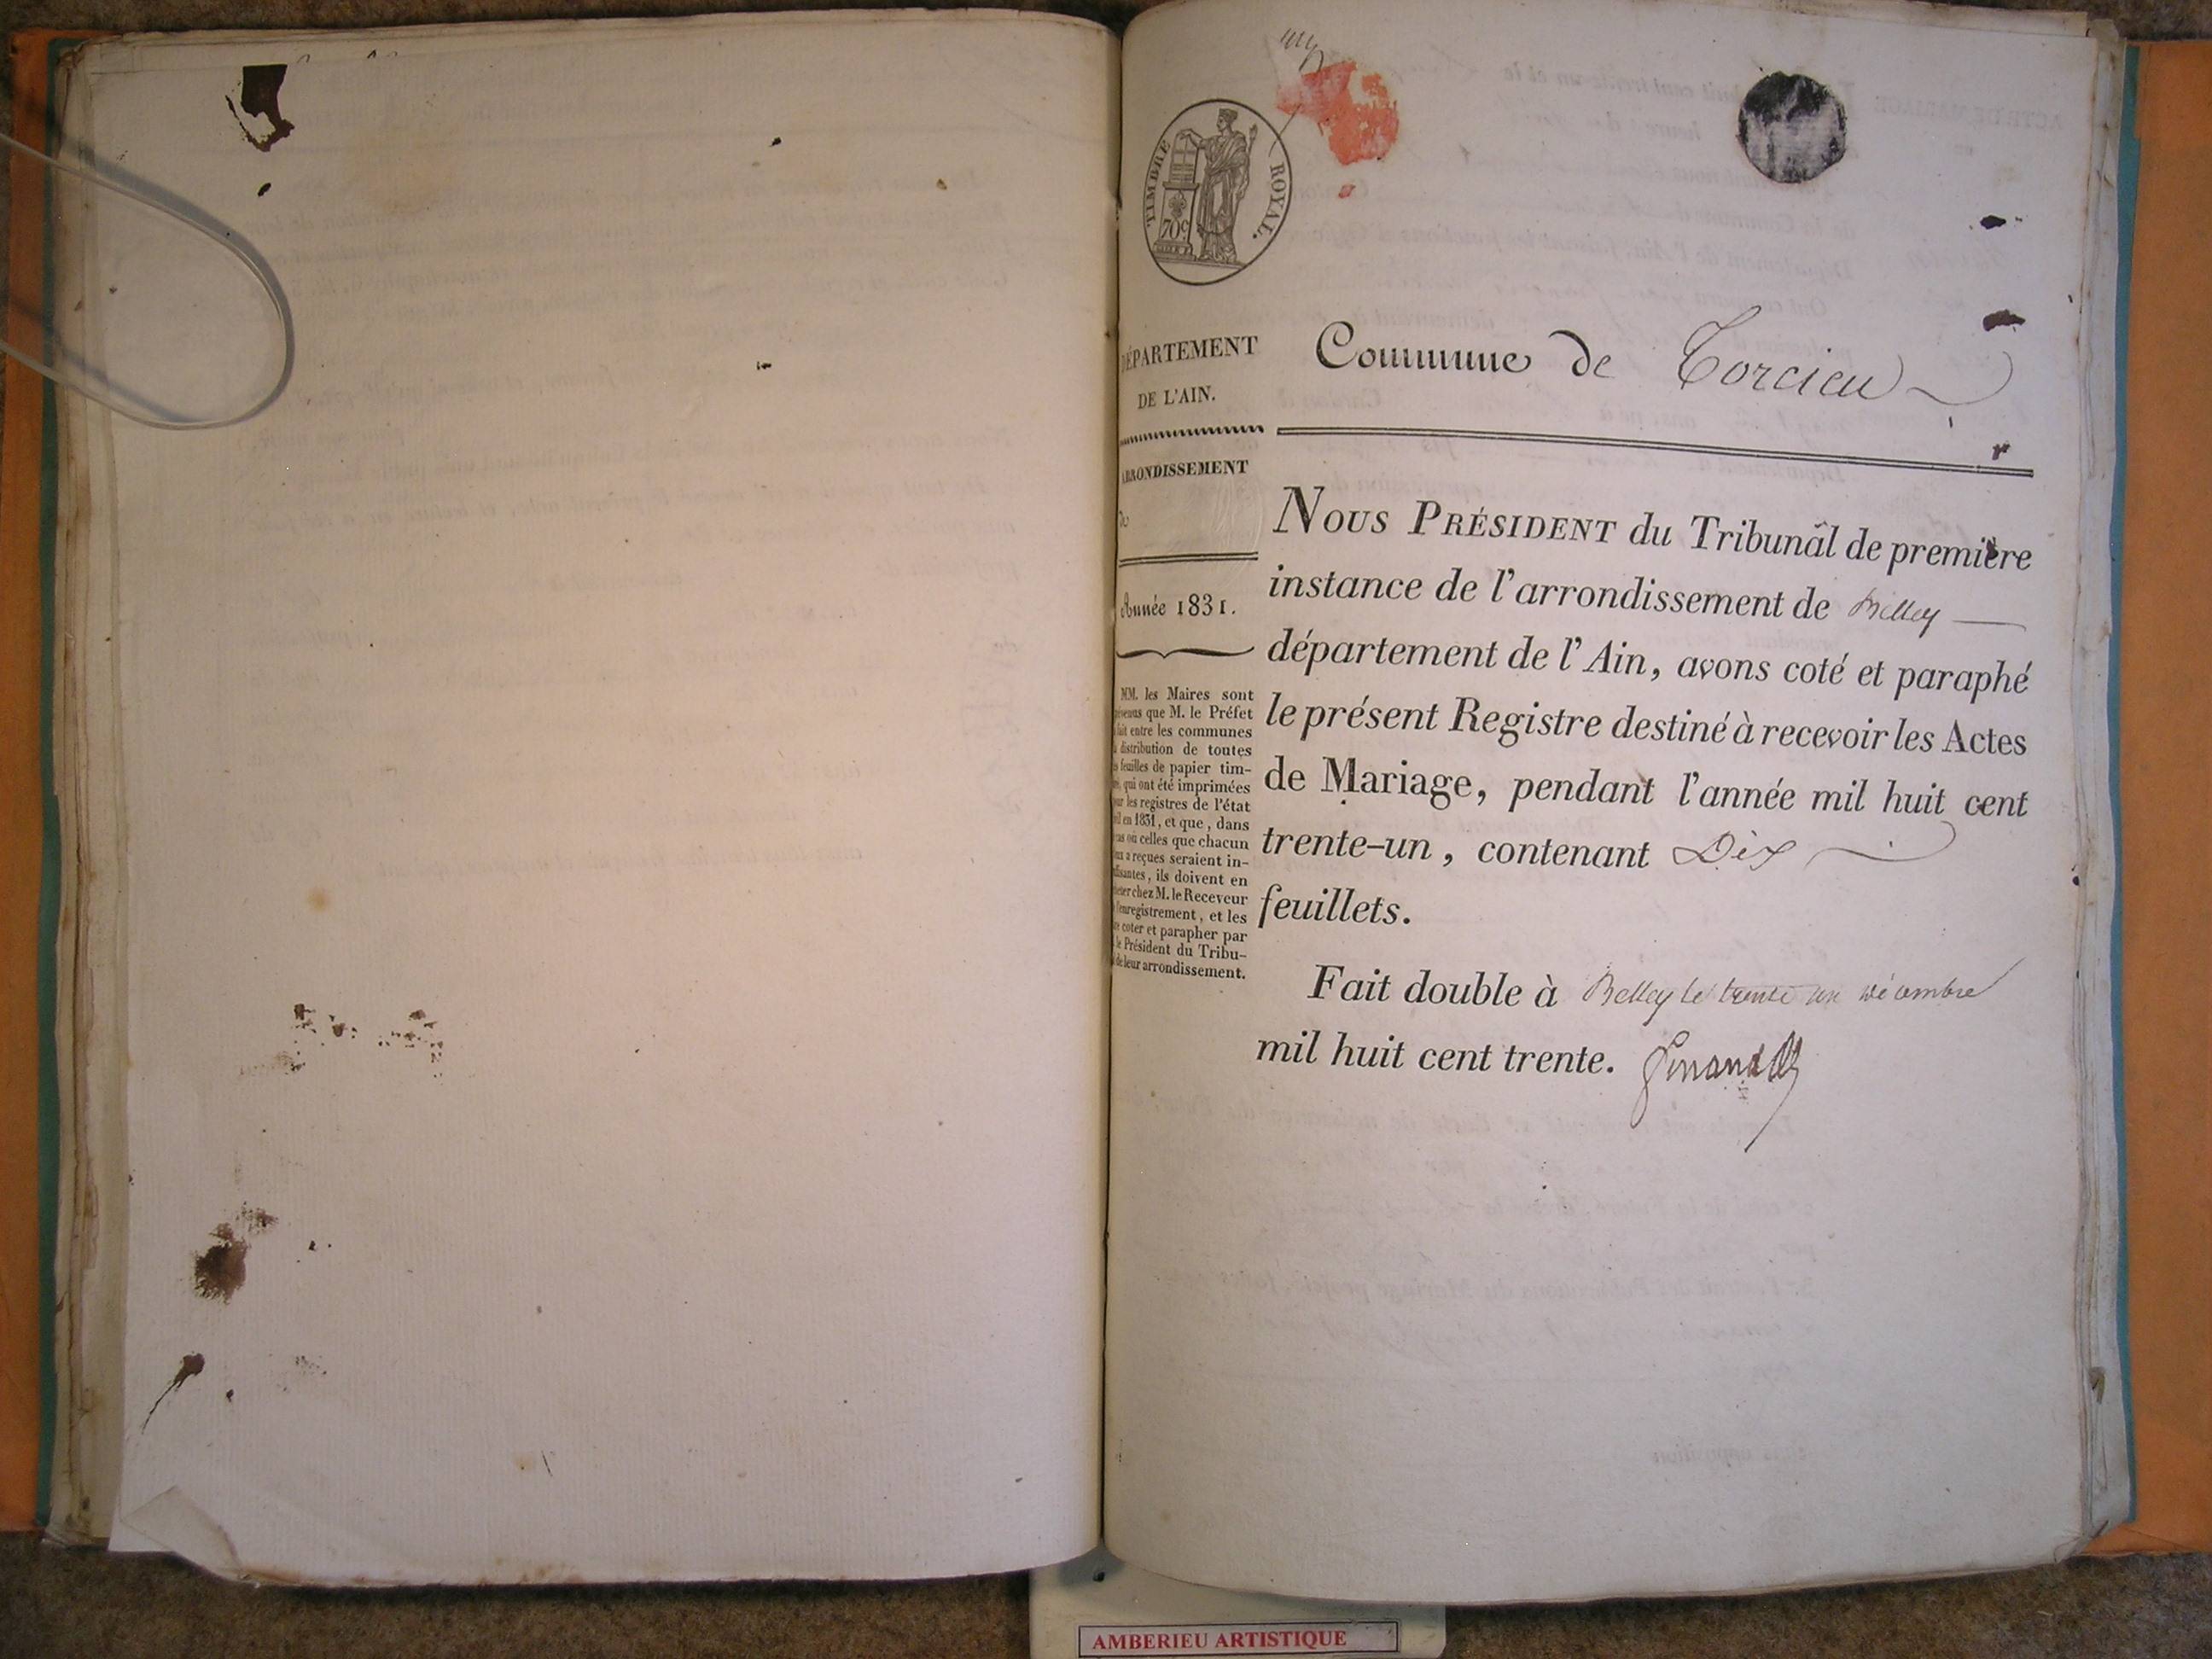 TIMBRE ROYAL.
70c
DÉPARTEMENT
DE L'AIN.
ARRONDISSEMENT
de
Année 1831.
MM. les Maires sont
que M. le Préfet
fait entre les communes
distribution de toutes
feuilles de papier tim-
qui ont été imprimées
les registres de l'état
en 1831, et que, dans
où celles que chacun
a reçues seraient in-
, ils doivent en
chez M. le Receveur
l'enregistrement, et les
coter et parapher par
le Président du Tribu-
de leur arrondissement.
Commune de Torcieu
NOUS PRÉSIDENT du Tribunal de première
instance de l'arrondissement de Belley
département de l'Ain, avons coté et paraphé
le présent Registre destiné à recevoir les Actes
de Mariage, pendant l'année mil huit cent
trente-un, contenant Dix
feuillets.
Fait double à Belley le trente un décembre
mil huit cent trente.
AMBERIEU ARTISTIQUE